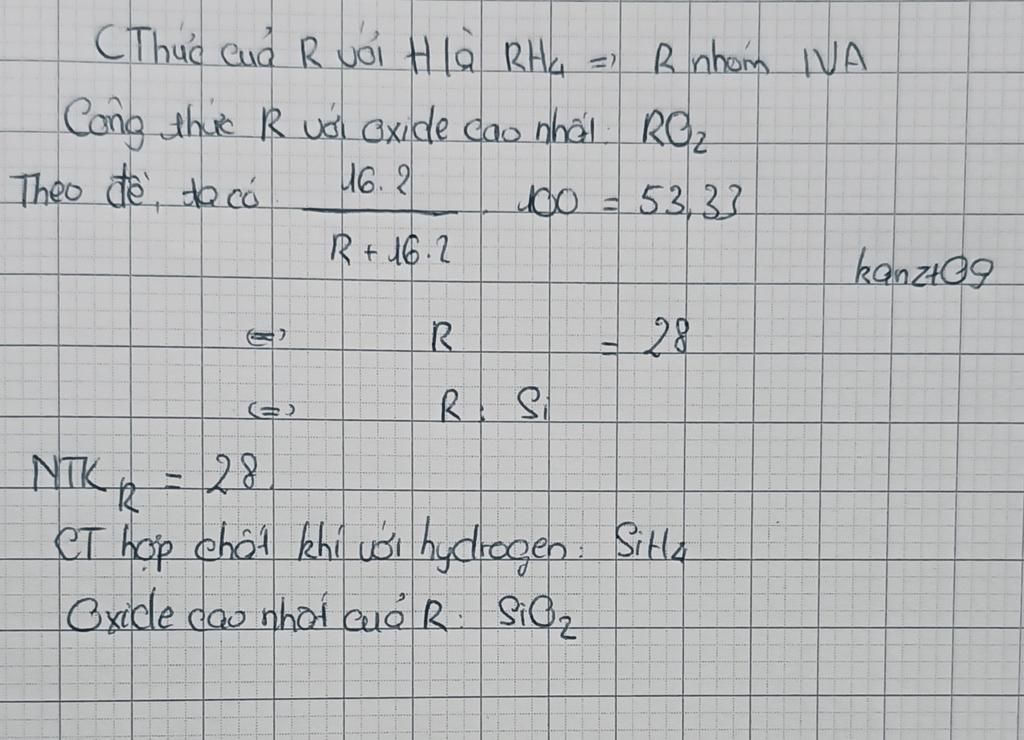 CThức của R với H là RH₄ => R nhóm IVA
Công thức R với oxide cao nhất: RO₂
Theo đề, ta có 16.2 / R + 16.2 . 100 = 53,33
kanzt09
<=> R = 28
<=> R: Si
NTK_R = 28
CT hợp chất khí với hydrogen: SiH₄
Oxide cao nhất của R: SiO₂